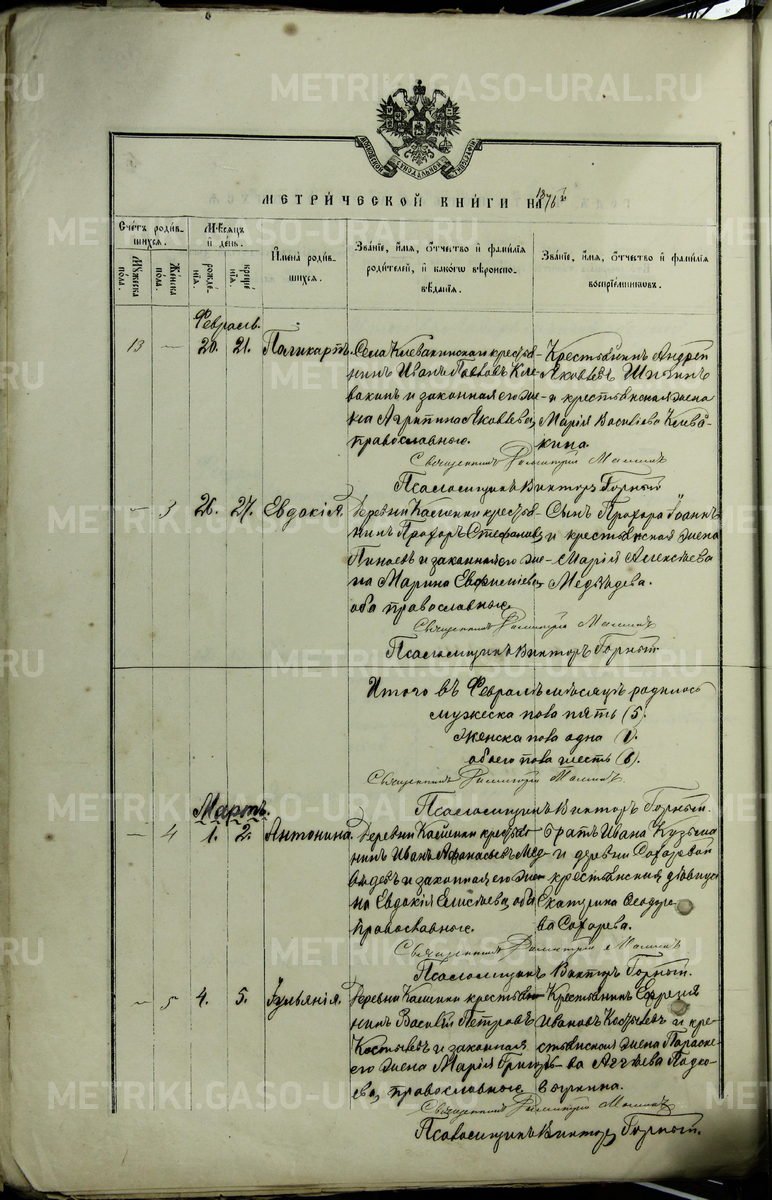 METRIKI.GASO-URAL.RU
МЕТРИЧЕСКОЙ КНИГИ НА 1876 г.
Счетъ родив-
шихся.
Мужеска
пола.
Женска
пола.
Мѣсяцъ
и день.
рожде-
нія.
креще-
нія.
Имена родив-
шихся.
Званіе, имя, отчество и фамилія
родителей, и какого вѣроиспо-
вѣданія.
Званіе, имя, отчество и фамилія
воспріемниковъ.
Февраль.
13 — 20. 21. Поликарпъ.
Села Клевакинскаго крестья-
нинъ Иванъ Павловъ Кле-
вакинъ и законная его же-
на Агрипина Яковлева,
православные.
Крестьянинъ Андрей
Яковлевъ
и крестьянская жена
Марія Васильева Клева-
кина.
Священникъ Димитрій
Псаломщикъ Викторъ Горный
— 3 26. 27. Евдокія.
Деревни Кашины крестья-
нинъ Прохоръ Стефановъ
Пинаевъ и законная его же-
на Марина Евфиміева,
оба православные.
Сынъ Прохора Іоаннъ
и крестьянская жена
Марія Алексѣева
Медвѣдева.
Священникъ Димитрій
Псаломщикъ Викторъ Горный.
Итого въ Февралѣ мѣсяцѣ родилось
мужеска пола пять (5).
Женска пола одна (1).
обоего пола шесть (6).
Священникъ Димитрій
Псаломщикъ Викторъ Горный.
Мартъ.
— 4 1. 2. Антонина.
Деревни Кашины крестья-
нинъ Иванъ Афанасьевъ Мед-
вѣдевъ и законная его же-
на Евдокія Елисѣева, оба
православные.
Братъ Ивана Кузьма
и деревни
крестьянская дѣвица
Екатерина Ѳеодоро-
ва
Священникъ Димитрій
Псаломщикъ Викторъ Горный.
— 5 4. 5. Іульянія.
Деревни Кашины крестья-
нинъ Василій Петровъ
Костылевъ и законная
его жена Марія Григорь-
ева, православные
Крестьянинъ
Ивановъ Костылевъ и кре-
стьянская жена Параске-
ва
Священникъ Димитрій
Псаломщикъ Викторъ Горный.